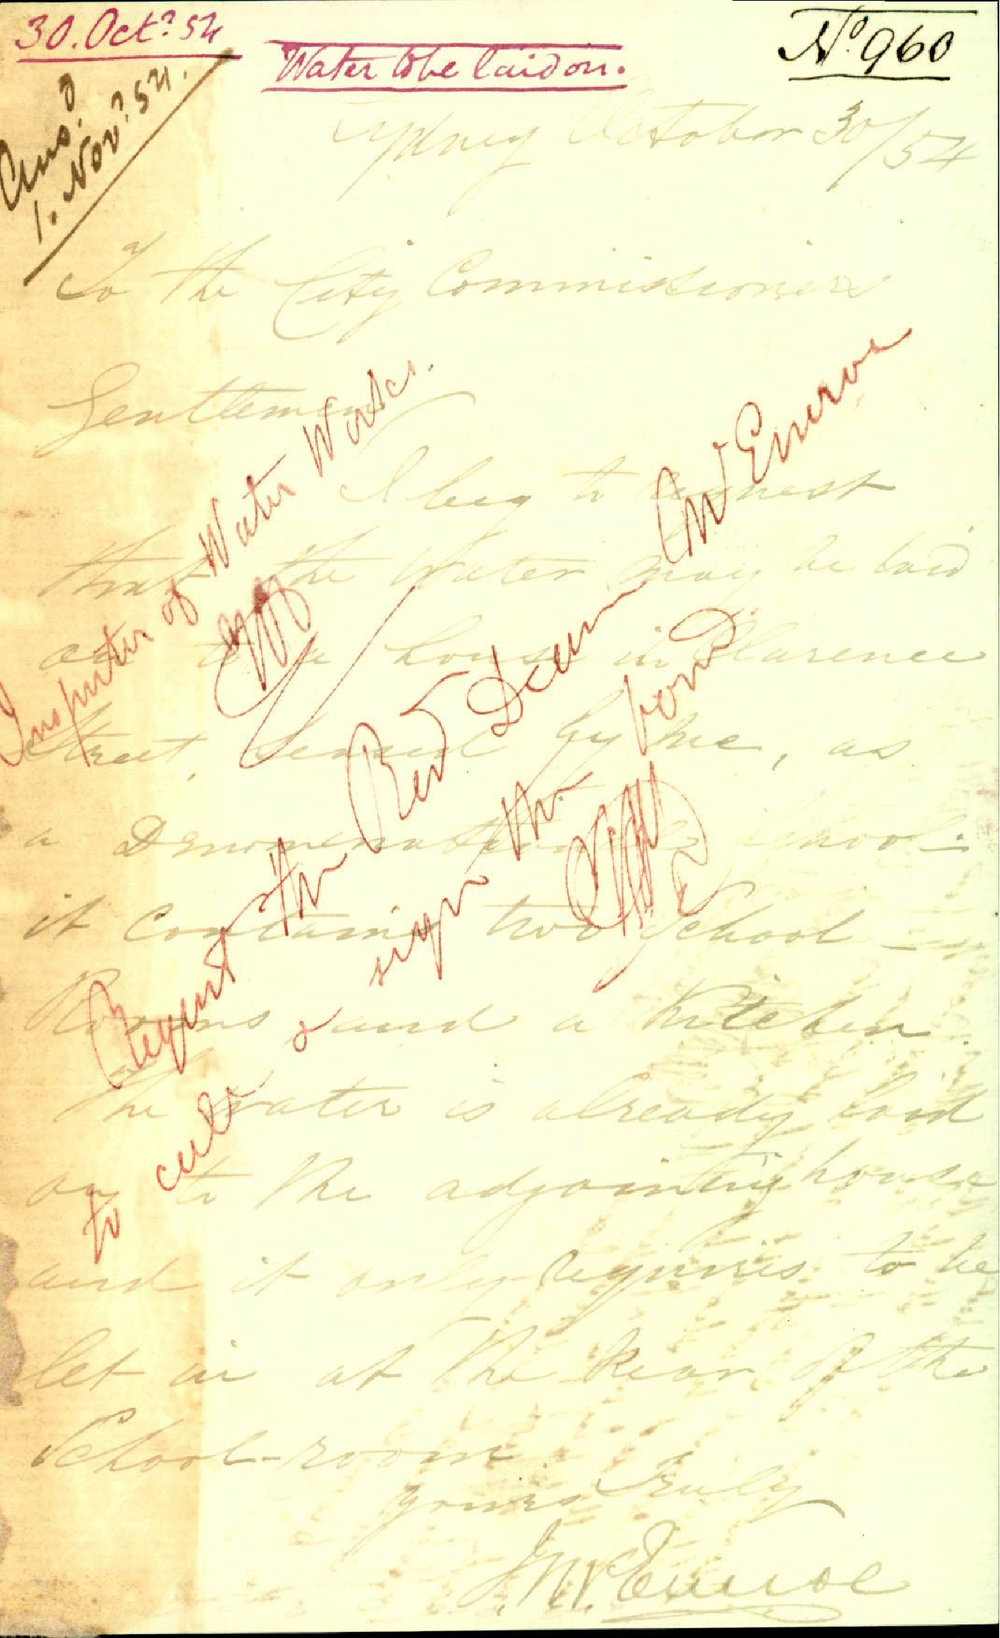 30. Octr. 54
Water to be laid on.
No. 960
Ansd.
1. Novr. 54.
Sydney October 30/54
To the City Commissioners
Gentlemen
I beg to request
that the Water may be laid
on to a house in Clarence
Street, leased by me, as
a Denominational School -
it contains two School -
Rooms and a Kitchen.
The water is already laid
on to the adjoining house
and it only requires to be
let in at the Rear of the
School-room
yours truly
J. McEncroe
Inspector of Water Works.
Request the Revd Dean McEncroe
to call & sign the bond